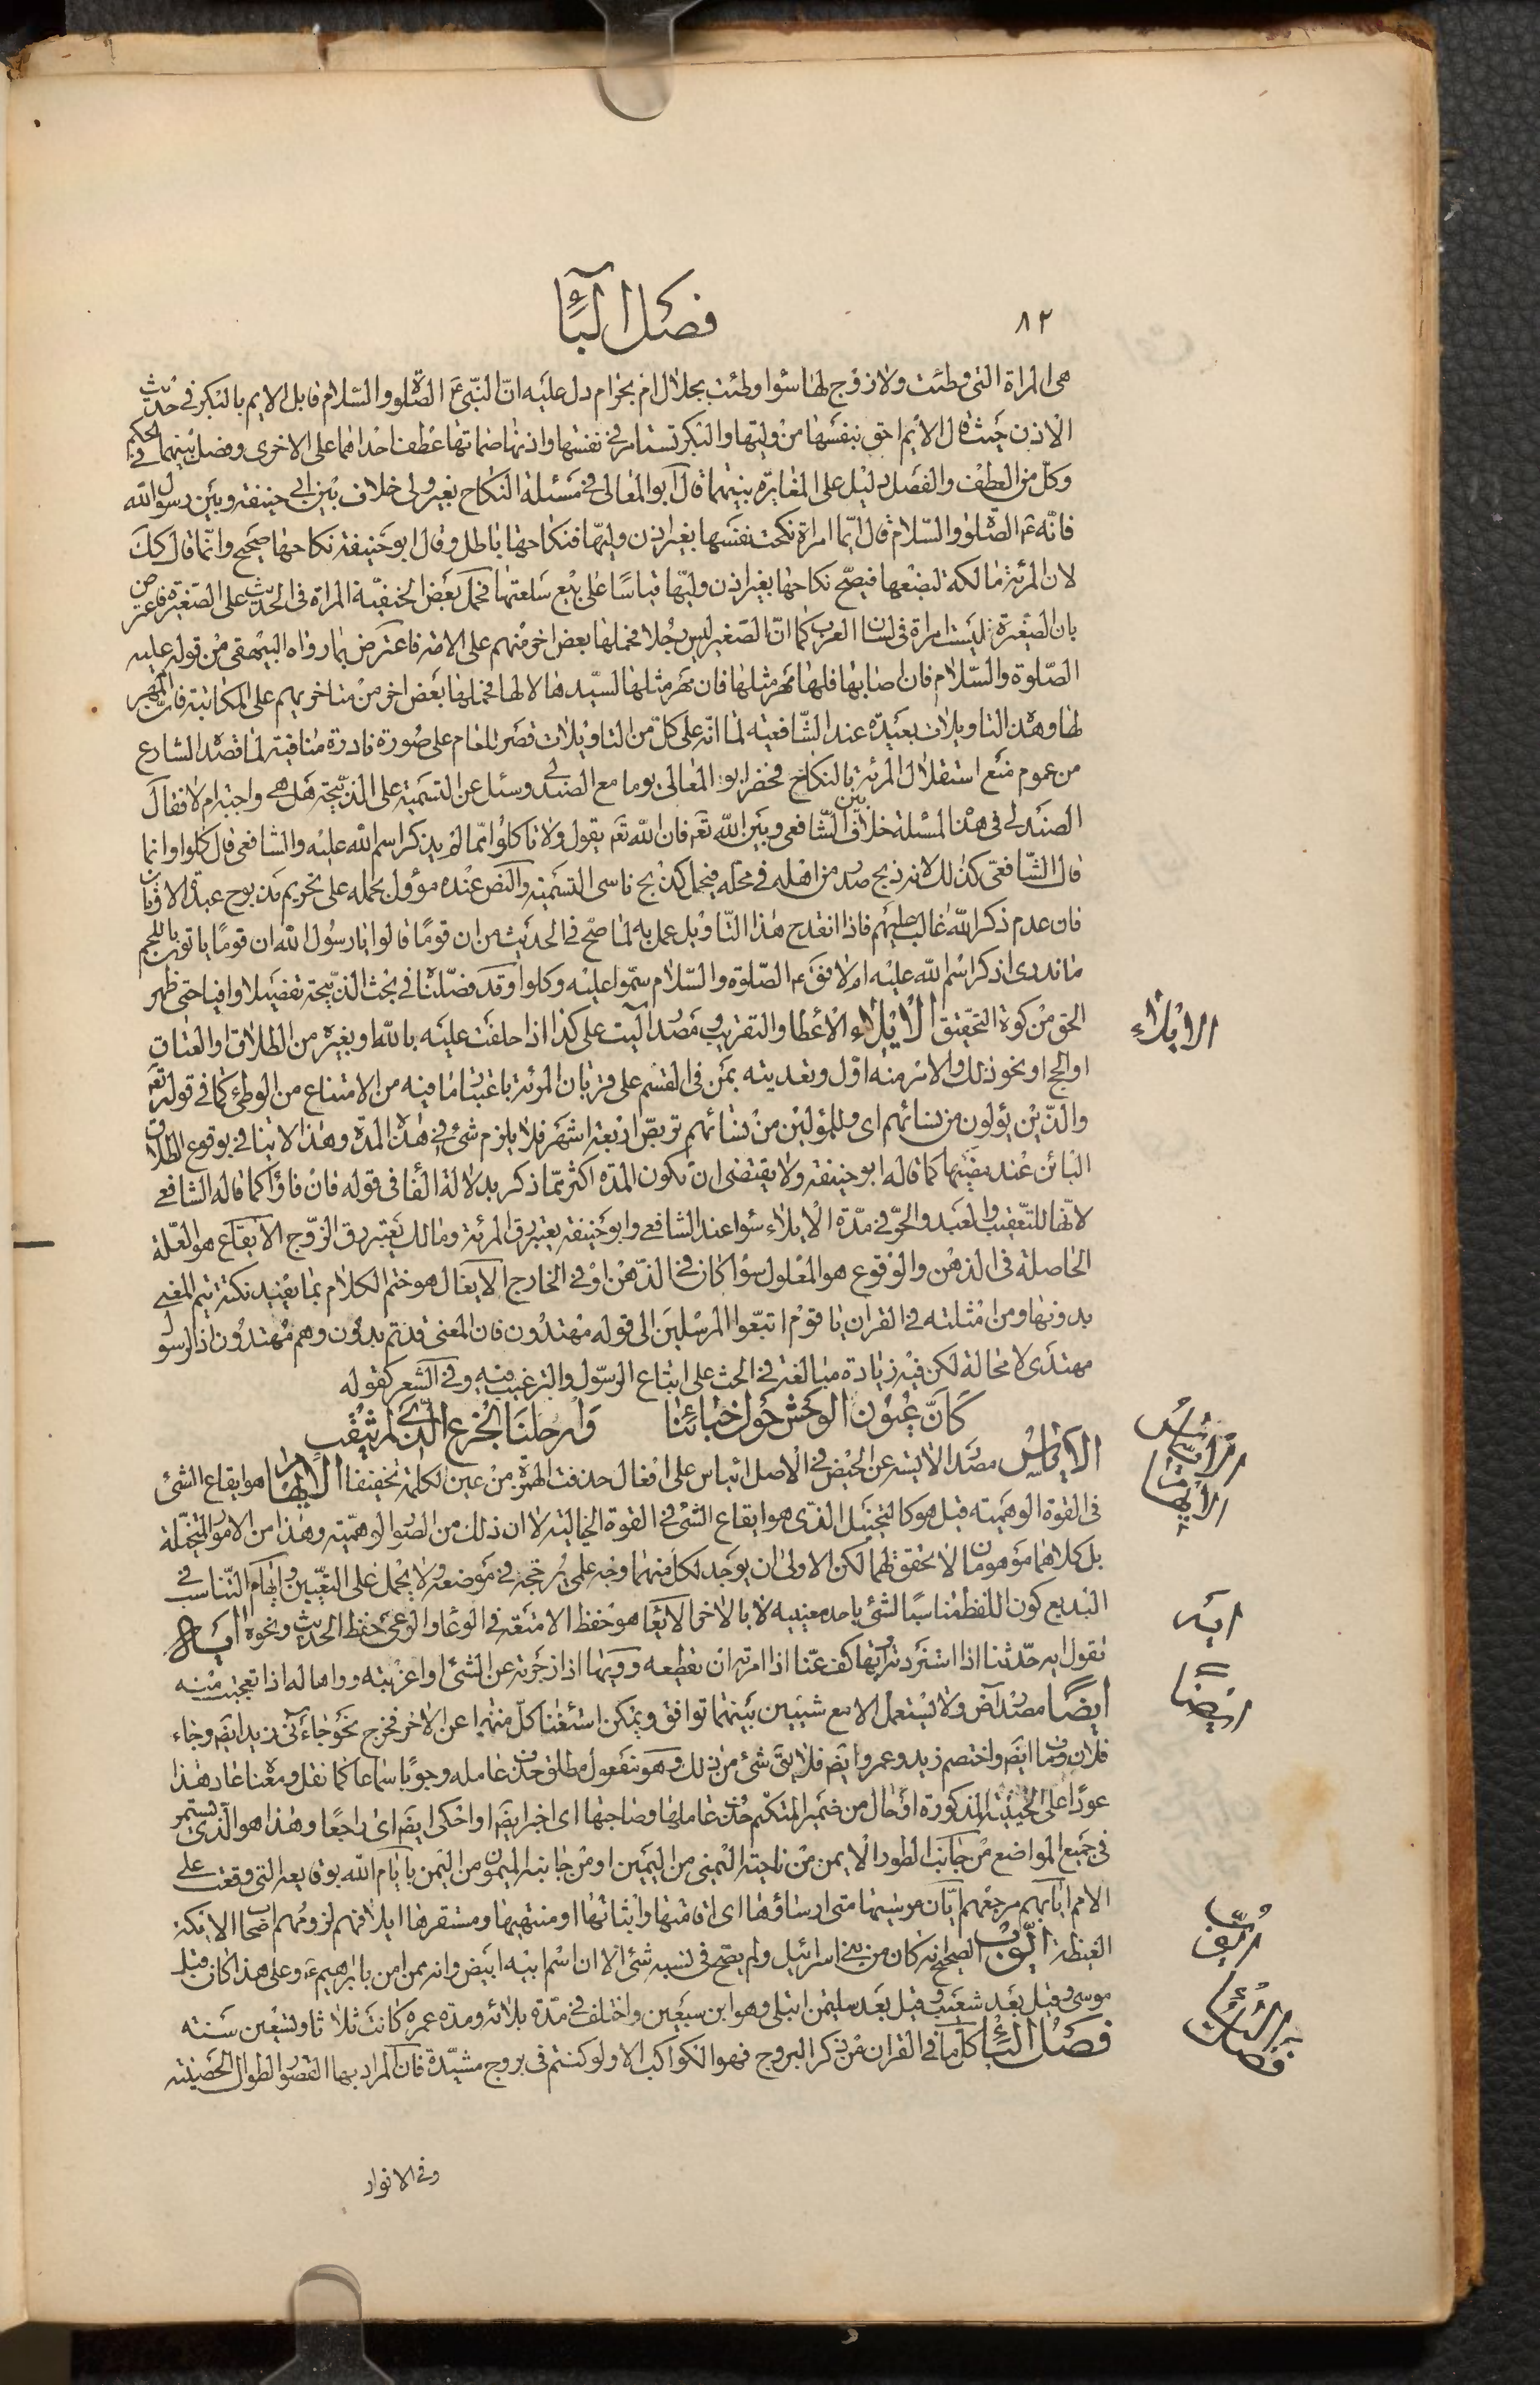 ٨٢
فصل الباء
هى المراة التى وطئت ولا زوج لها سوا وطئت بحلال ام بحرام دل عليه انّ النّبىّ عم الصّلوة والسّلام قابل الايم بالبكر فى حديث
الاذن حيث قال الايم احق بنفسها من وليّها والبكر تستامر فى نفسها واذنها صماتها عطف احداهما على الاخرى وفصل بينهما فى الحكم
وكلّ من العطف والفصل دليل على المغايرة بينهما قال ابو المعالى فى مسئلة النكاح بغير ولى خلاف بين ابى حنيفة وبين رسول الله
فانّه عم الصّلوة والسّلام قال ايّما امراة نكحت نفسها بغير اذن وليّها فنكاحها باطل وقال ابو حنيفة نكاحها صحيح وانّما قال كك
لان المرئة مالكة لبضعها فيصحّ نكاحها بغير اذن وليّها قياسًا على بيع سلعتها فحمل بعض الحنفيّة المراة فى الحديث على الصّغيرة فاعترض
بان الصّغيرة ليست امراة فى لسان العرب كما انّ الصّغير ليس رجلا فحملها بعض اخر منهم على الامة فاعترض بما رواه البيهقى من قوله عليه
الصّلوة والسّلام فان اصابها فلها مهر مثلها فان مهر مثلها لسيّدها لا لها فحملها بعض اخر من متاخريهم على المكاتبة فان المهر
لها وهذه التاويلات بعيدة عند الشّافعية لما انّه على كلّ من التاويلات قصر للعام على صورة نادرة منافية لما قصده الشارع
من عموم منع استقلال المرئة بالنكاح فحضر ابو المعالى يوما مع الصندلى وسئل عن التسمية على الذّبيحة هل هى واجبة ام لا فقال
الصندلى فى هذه المسئلة خلاف بين الشّافعى وبين الله تعم فان الله تعم يقول ولا تاكلوا ممّا لم يذكر اسم الله عليه والشافعى قال كلوا وانما
قال الشّافعى كذلك لانه ذبح صدر من اهله فى محلّه فيحل كذبح ناسى التسمية والنص عنده مؤول بحمله على تحريم مذبوح عبدة الاوثان
فان عدم ذكر الله غالب عليهم فاذا انقدح هذا التّاويل عمل به لما صحّ فى الحديث من ان قومًا قالوا يا رسول الله ان قومًا ياتوننا باللحم
ما ندرى اذكر اسم الله عليه ام لا فق عم الصّلوة والسّلام سمّوا عليه وكلوا وقد فصّلنا فى بحث الذّبيحة تفصيلا وافيا حتى ظهر
الحق من كوة التحقيق الايلاء الاعطا والتقريب ومصدر آليت على كذا اذا حلفت عليه بالله او بغيره من الطلاق او العتاق
او الحج او نحو ذلك والاسم منه اول وتعديته بمن فى القسم على قربان المرئة باعتبار ما فيه من الامتناع من الوطى كما فى قوله تعم
والّذين يؤلون من نسائهم اى وللمؤلين من نسائهم تربصّ اربعة اشهر فلا يلزم شئ فى هذه المدّة وهذا لا ينافى بوقوع الطلاق
البائن عند مضيّها كما قاله ابو حنيفة ولا يقتضى ان تكون المدّة اكثر ممّا ذكر بدلالة الفا فى قوله فان فاؤا كما قاله الشافعى
لانّها للتّعقيب والعبد والحرّ فى مدّة الايلاء سوا عند الشافعى وابو حنيفة يعتبر رق المرئة ومالك يعتبر رق الزوج الايقاع هو العلّة
الحاصلة فى الذهن والوقوع هو المعلول سوا كان فى الذّهن او فى الخارج الايغال هو ختم الكلام بما يفيد نكتة يتم المعنى
بدونها ومن امثلته فى القران يا قوم اتبعّوا المرسلين الى قوله مهتدون فان المعنى قد تم بدون وهم مهتدون اذ الرسول
مهتدى لا محالة لكن فيه زيادة مبالغة فى الحث على اتباع الرسّول والترغيب فيه وفى الشعر كقوله
كانّ عيون الوحش حول خبائنا وارحلنا الجزع الّذى لم يثقب
الاياس مصدر الايسة عن الحيض فى الاصل ائياس على افعال حذفت الهمزة من عين الكلمة تخفيفا الايهام هو ايقاع الشئ
فى القوة الوهمية قيل هو كالتخييل الذى هو ايقاع الشئ فى القوة الخيالية لا ان ذلك من الصور الوهميّة وهذا من الامور المتخيّلة
بل كلاهما موهومان لا تحقق لهما لكن الاولى ان يوجد لكل منهما وجه علمى يرجّحه فى موضعه ولا يحمل على التعّيين وايهام التّناسب فى
البديع كون اللفظ مناسبًا لشئ باحد معنييه لا بالاخر الايعا هو حفظ الامتعة فى الوعا والوعى حفظ الحديث ونحوه ايه
تقول ايه حدّثنا اذا استزدته وايها كف عنّا اذا امرته ان يقطعه وويها اذا زجرته عن الشئ او اغريته وواها له اذا تعجبت منه
ايضًا مصدر آض ولا يستعمل الا مع شيئين بينهما توافق ويمكن استغنا كلّ منهما عن الاخر فخرج نحو جاءنى زيد ايضم وجاء
فلان ومات ايضم واختصم زيد وعمرو ايضم فلا يق شئ من ذلك وهو مفعول مطلق حذف عامله وجوبًا سماعا كما نقل ومعناه عاد هذا
عودا على الحيثية المذكورة او حال من ضمير المتكلّم حذف عاملها وصاحبها اى اخبر ايضم او احكى ايضم اى راجعًا وهذا هو الّذى يستمر
فى جميع المواضع من جانب الطور الايمن من ناحيته اليمنى من اليمين او من جانبه الميمون من اليمن بايّام الله بوقايعه التى وقعت على
الامم ايابهم مرجعهم ايّان مرسيها متى ارساؤها اى اقامتها واثباتها او منتهيها ومستقرها ايلافهم لزومهم اصحاب الايكة
الغيظة ايّوب الصحيح انه كان من بنى اسرائيل ولم يصحّ فى نسبه شئ الا ان اسم ابيه ابيض وانه ممن امن بابراهيم عم وعلى هذا كان قبل
موسى وقيل بعد شعيب وقيل بعد سليمن ابتلى وهو ابن سبعين واختلف فى مدّة بلائه ومدة عمره كانت ثلاثا وتسعين سنة
فصل الباء كلّ ما فى القران من ذكر البروج فهو الكواكب الا ولو كنتم فى بروج مشيّدة فان المراد بها القصور الطوال الحصينة
وفى الانوار
الايلاء
الاياس
الايهام
ايه
ايضًا
ايّوب
فصل الباء